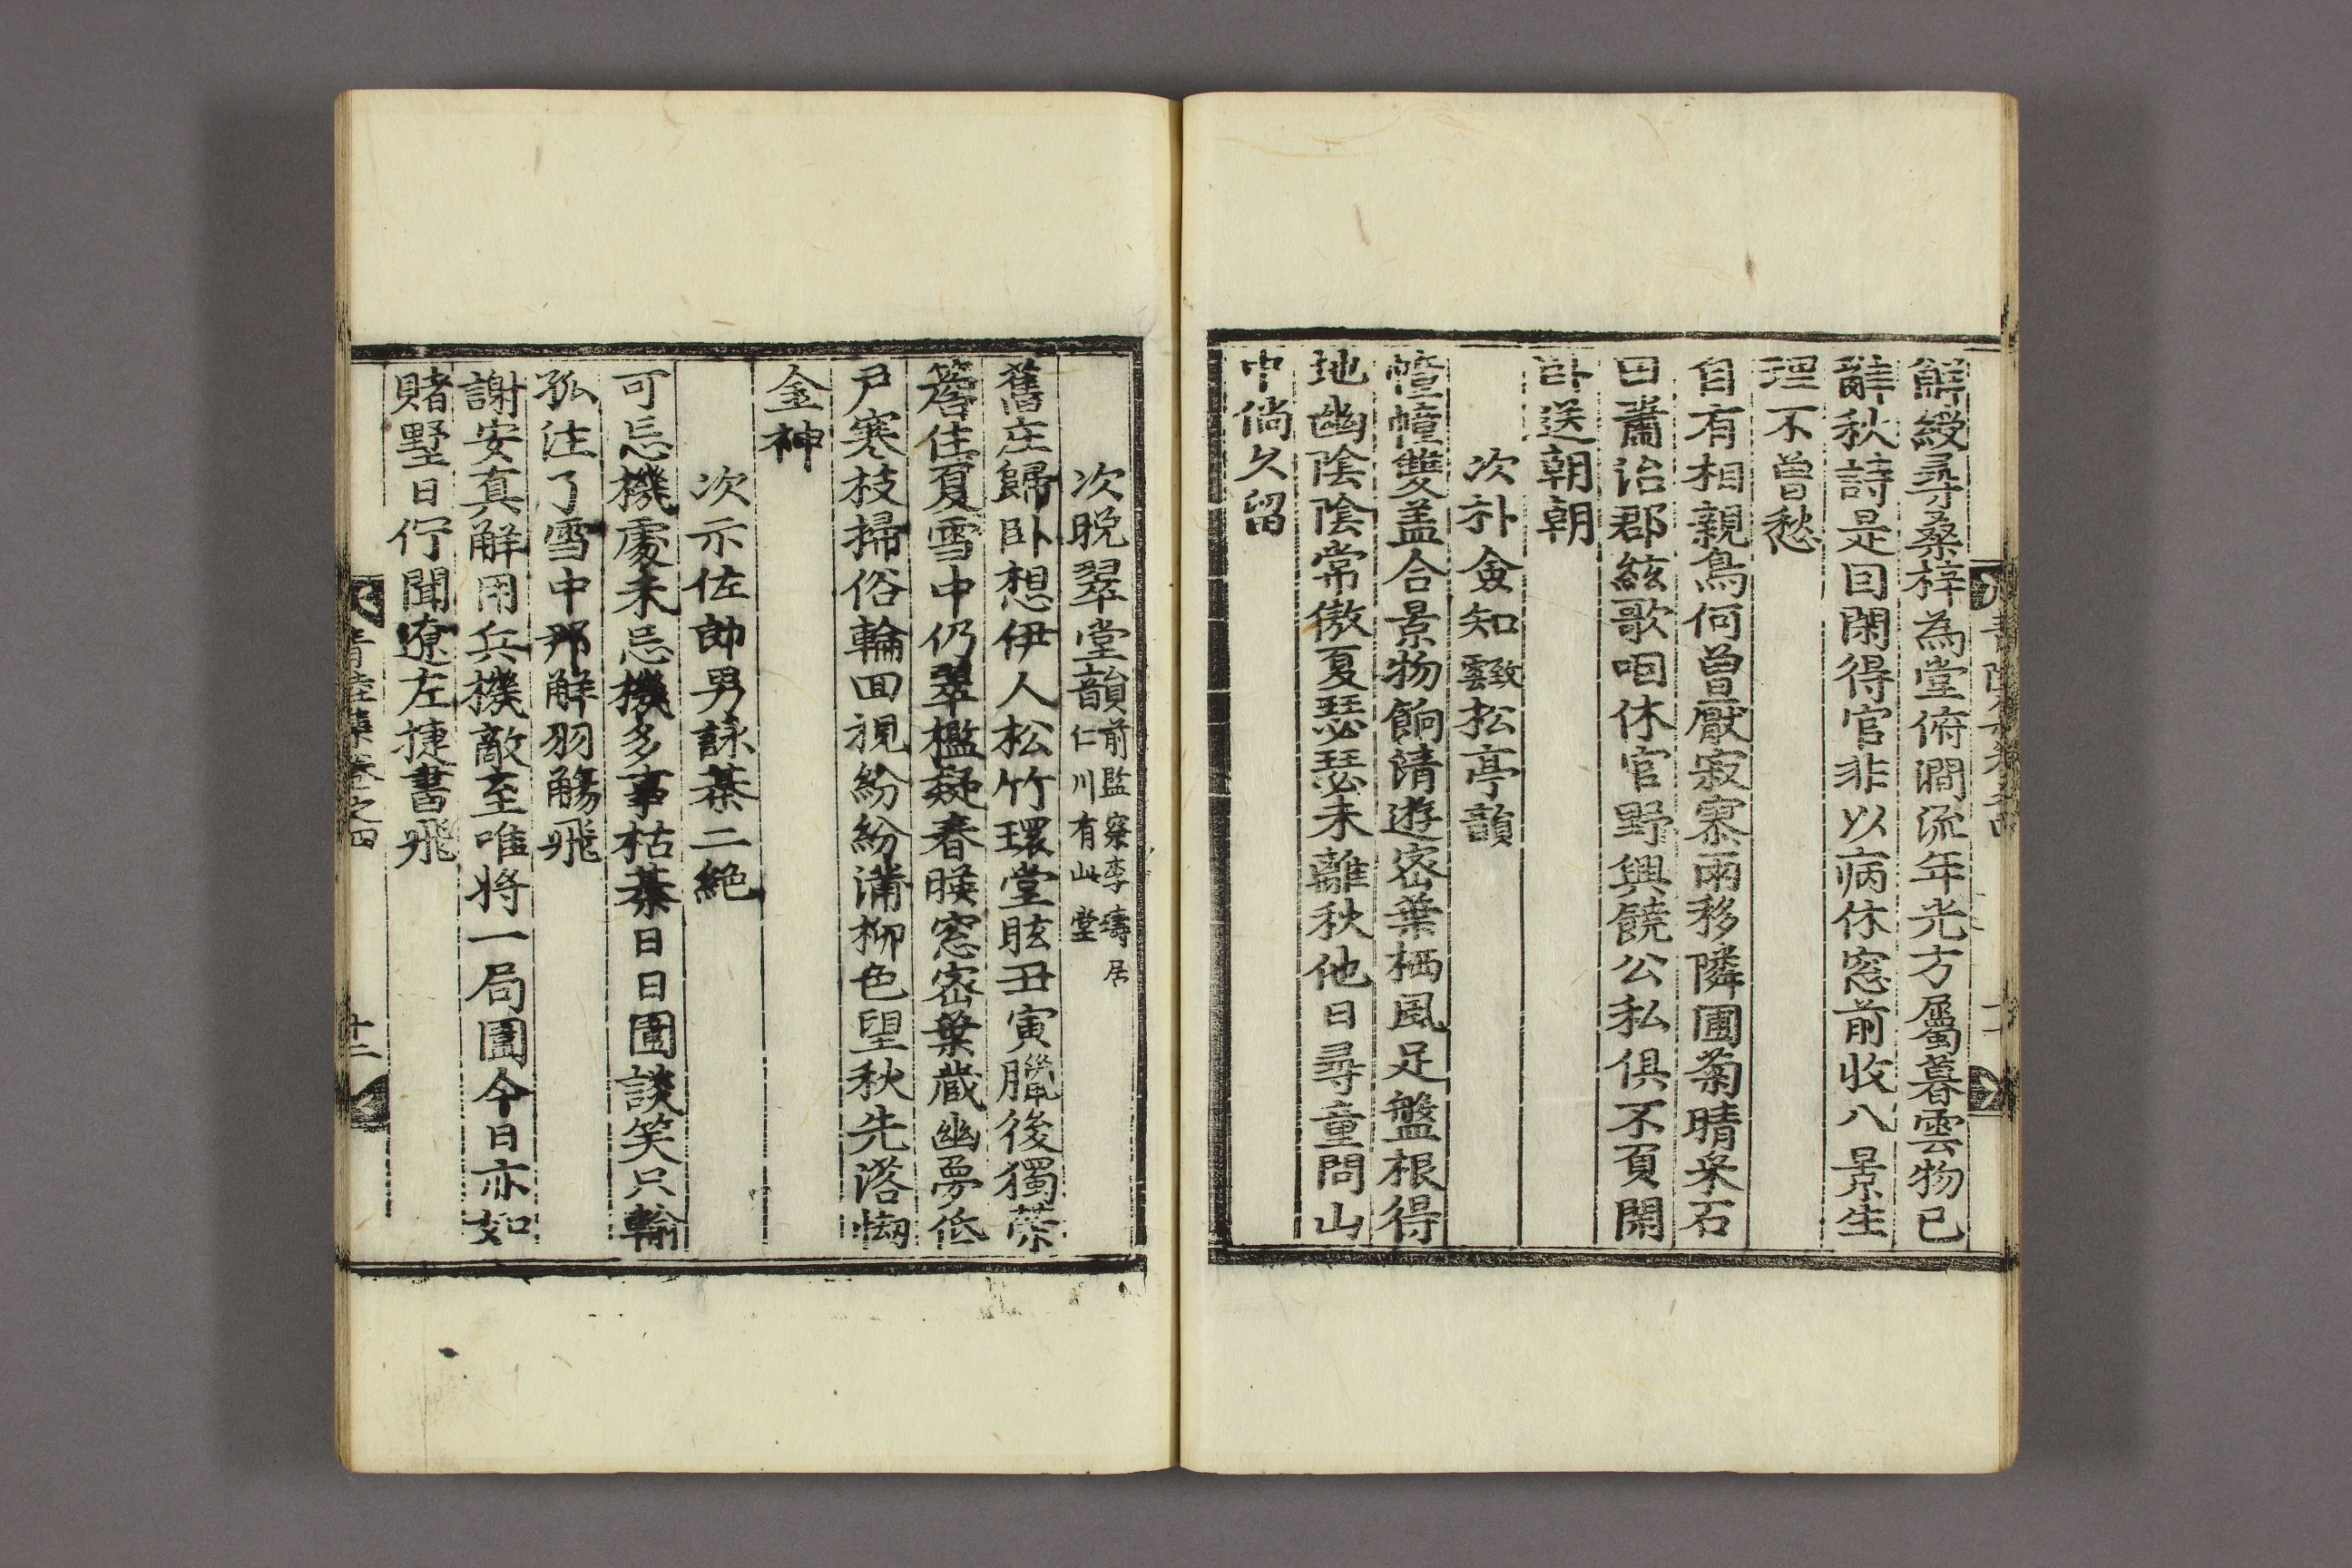 解綬尋桑梓為堂俯澗流年光方屬暮雲物已
辭秋詩是因閑得官非以病休窓前收八景生
理不曾愁
自有相親鳥何曾厭寂寥雨移隣圃菊晴采石
田蕭治郡絃歌咽休官野興饒公私俱不負閑
卧送朝朝
次朴僉知緻松亭韻
幢幢雙盖合景物餉清遊密葉栖風足盤根得
地幽陰陰常傲夏瑟瑟未離秋他日尋童問山
中倘久留
次晩翠堂韻前監察李壔居
仁川有此堂
舊庄歸卧想伊人松竹環堂眩丑寅臘後獨榮
簷住夏雪中仍翠檻凝春暎窓密葉藏幽夢低
戶寒枝掃俗輪回視紛紛蒲柳色望秋先落惱
金神
次示佐郎男詠棊二絶
可忘機處未忘機多事枯棊日日圍談笑只輸
孤注了雪中那解羽觴飛
謝安真解用兵機敵至唯將一局圍今日亦如
賭墅日佇聞遼左捷書飛
青陸集卷之四
十二